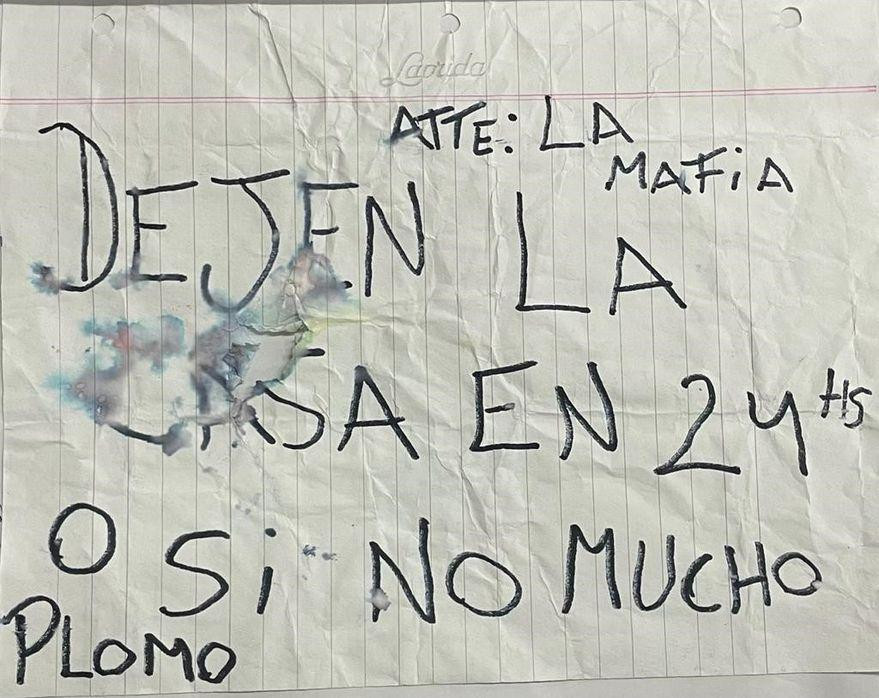 Laprida
ATTE: LA
MAFiA
DEJEN LA
CASA EN 24 HS
O Si NO MUCHO
PLOMO